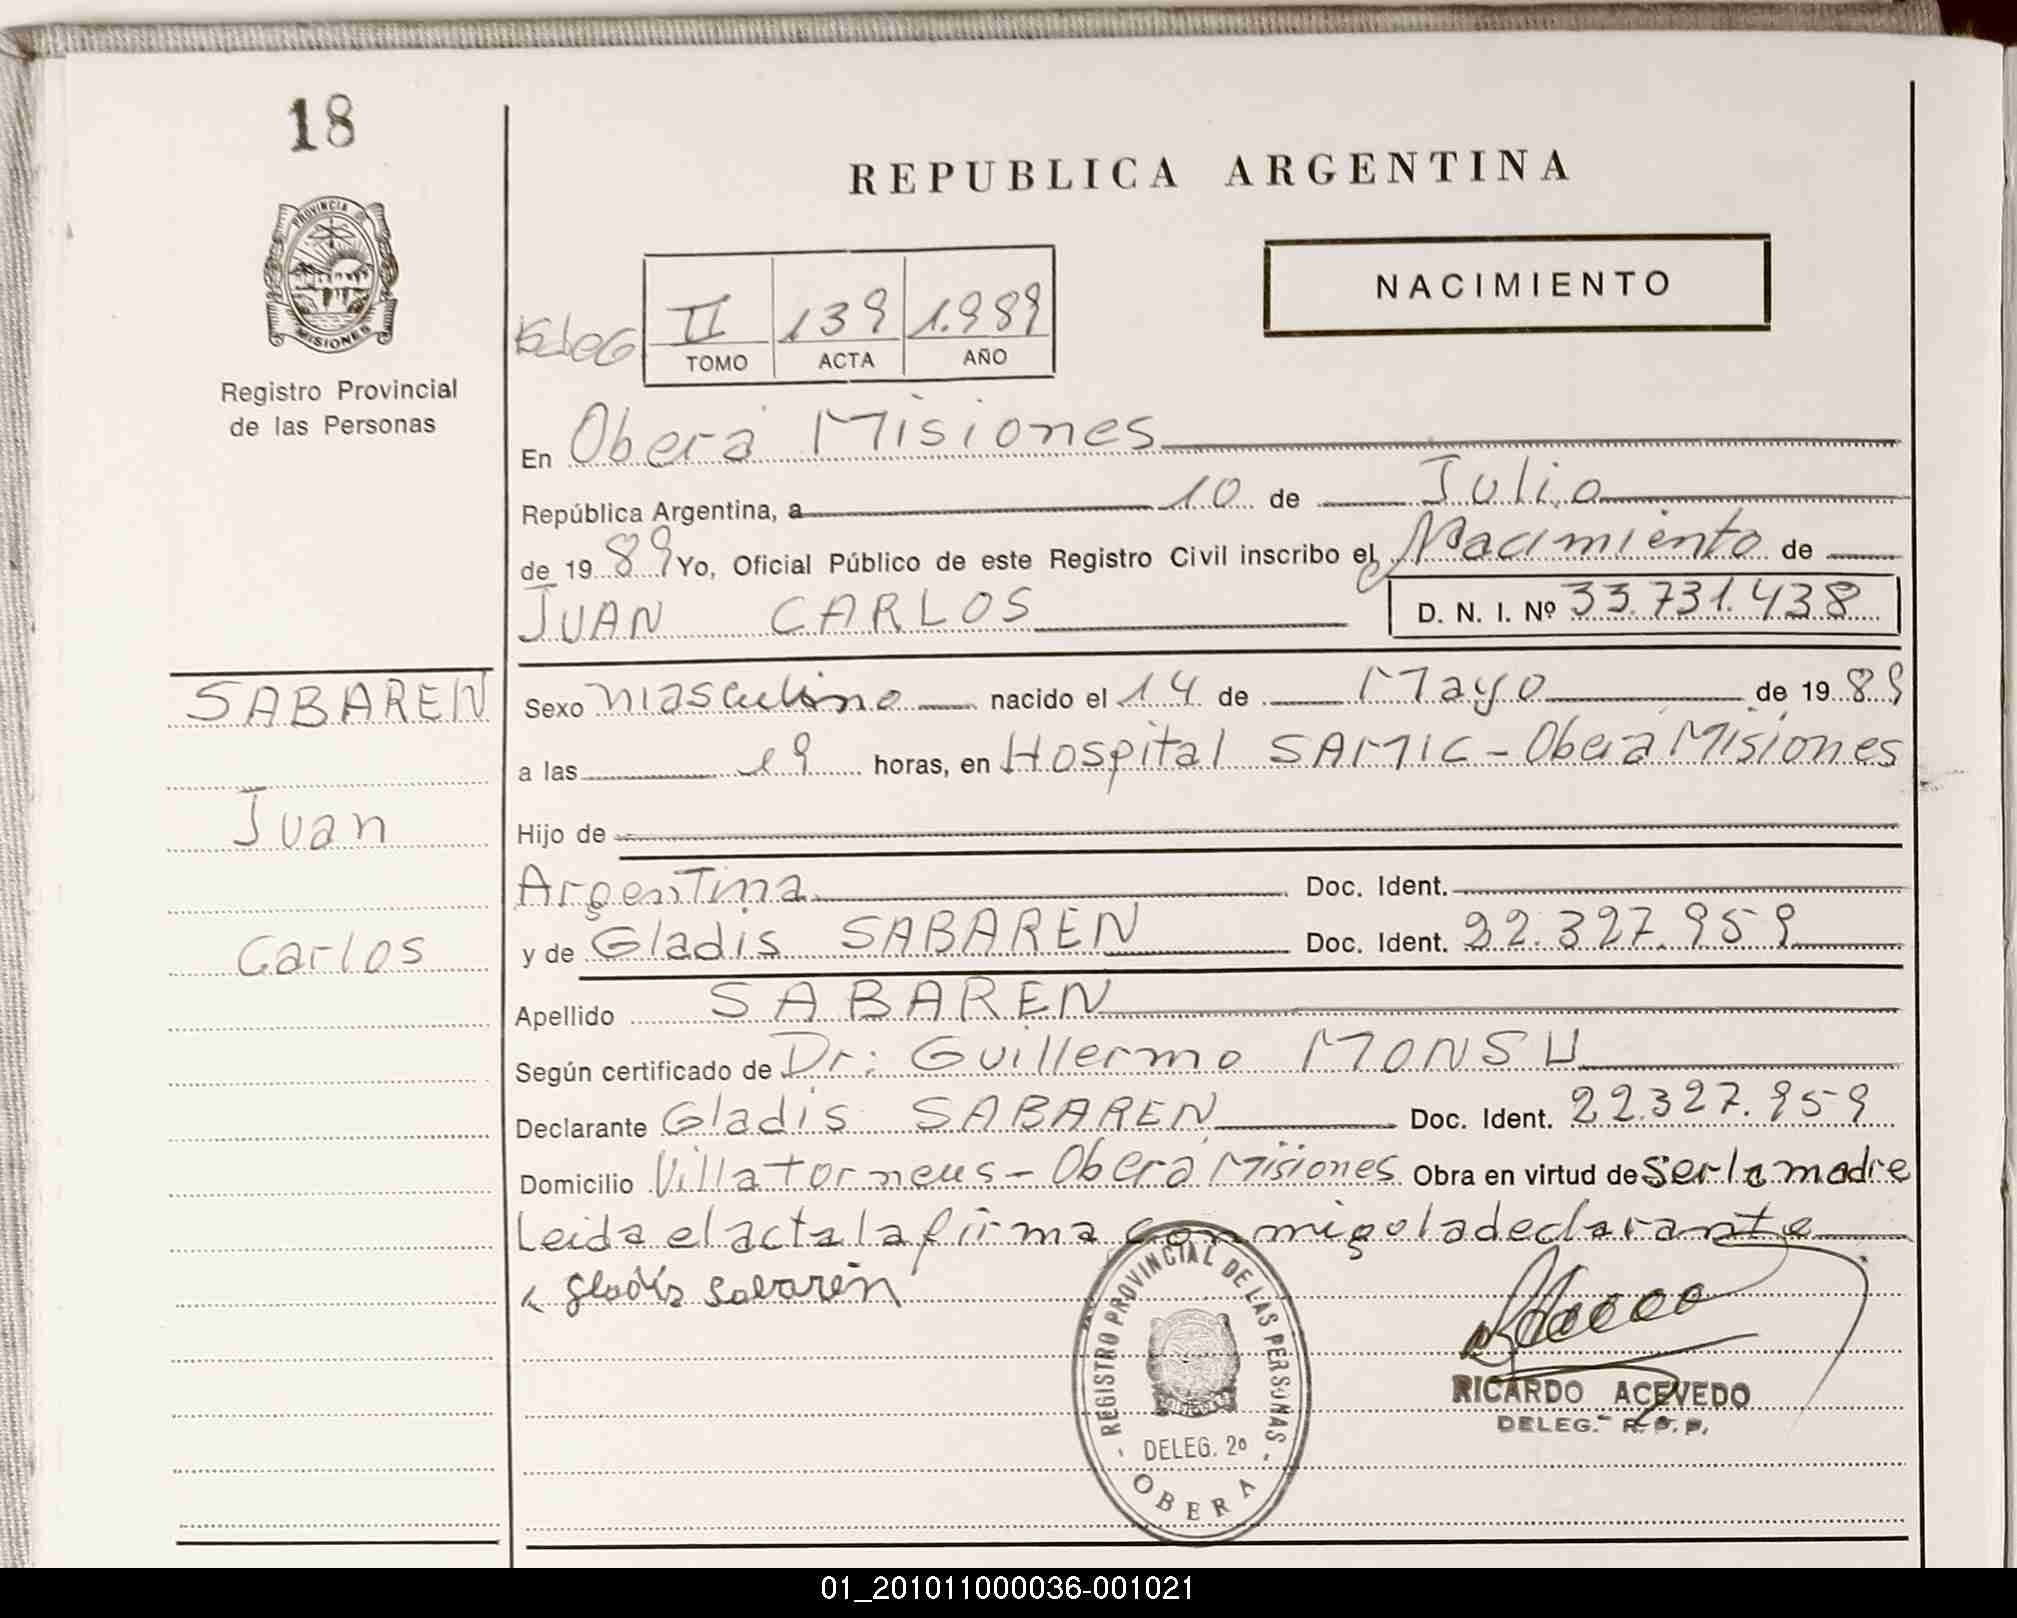 18
PROVINCIA DE
MISIONES
Registro Provincial
de las Personas
REPUBLICA ARGENTINA
NACIMIENTO
II 139 1.989
TOMO ACTA AÑO
En Oberá Misiones
República Argentina, a 10 de Julio
de 1989 Yo, Oficial Público de este Registro Civil inscribo el Nacimiento de
JUAN CARLOS D. N. I. Nº 33.731.438
SABAREN
Juan
Carlos
Sexo masculino nacido el 14 de Mayo de 1989
a las 19 horas, en Hospital SAMIC - Oberá Misiones
Hijo de
Argentina Doc. Ident.
y de Gladis SABAREN Doc. Ident. 22.327.959
Apellido SABAREN
Según certificado de Dr: Guillermo MONSU
Declarante Gladis SABAREN Doc. Ident. 22.327.959
Domicilio Villa torneus - Oberá Misiones Obra en virtud de ser la madre
Leida el acta la firma conmigo la declarante
Gladis Sabarén
REGISTRO PROVINCIAL DE LAS PERSONAS
DELEG. 2º
OBERA
RICARDO ACEVEDO
DELEG. R. P. P.
01_201011000036-001021